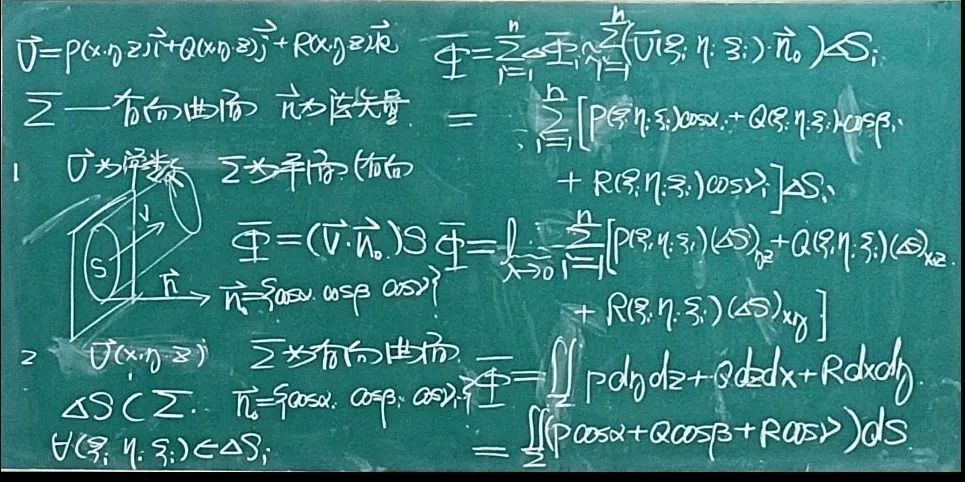 V⃗=P(x.y.z)i⃗+Q(x.y.z)j⃗+R(x.y.z)k⃗
Σ—有向曲面 n⃗为法矢量
1 V⃗为常数 Σ为平面(有向
S V n⃗
Φ=(V⃗·n⃗₀)S
n⃗₀={cosα. cosβ cosγ}
2 V⃗(x.y.z) Σ为有向曲面.
ΔSᵢ⊂Σ. n⃗₀={cosαᵢ cosβᵢ cosγᵢ}
∀(ξᵢ ηᵢ ζᵢ)∈ΔSᵢ
Φ=∑ⁿᵢ₌₁ΔΦᵢ≈∑ⁿᵢ₌₁(V⃗(ξᵢ ηᵢ ζᵢ)·n⃗₀)ΔSᵢ
=∑ⁿᵢ₌₁[P(ξᵢ ηᵢ ζᵢ)cosαᵢ+Q(ξᵢ ηᵢ ζᵢ)cosβᵢ
+R(ξᵢ ηᵢ ζᵢ)cosγᵢ]ΔSᵢ
Φ=lim λ→0 ∑ⁿᵢ₌₁[P(ξᵢ ηᵢ ζᵢ)(ΔSᵢ)yz+Q(ξᵢ ηᵢ ζᵢ)(ΔSᵢ)xz
+R(ξᵢ ηᵢ ζᵢ)(ΔSᵢ)xy]
Φ=∬Σ Pdydz+Qdzdx+Rdxdy.
=∬Σ(Pcosα+Qcosβ+Rcosγ)dS